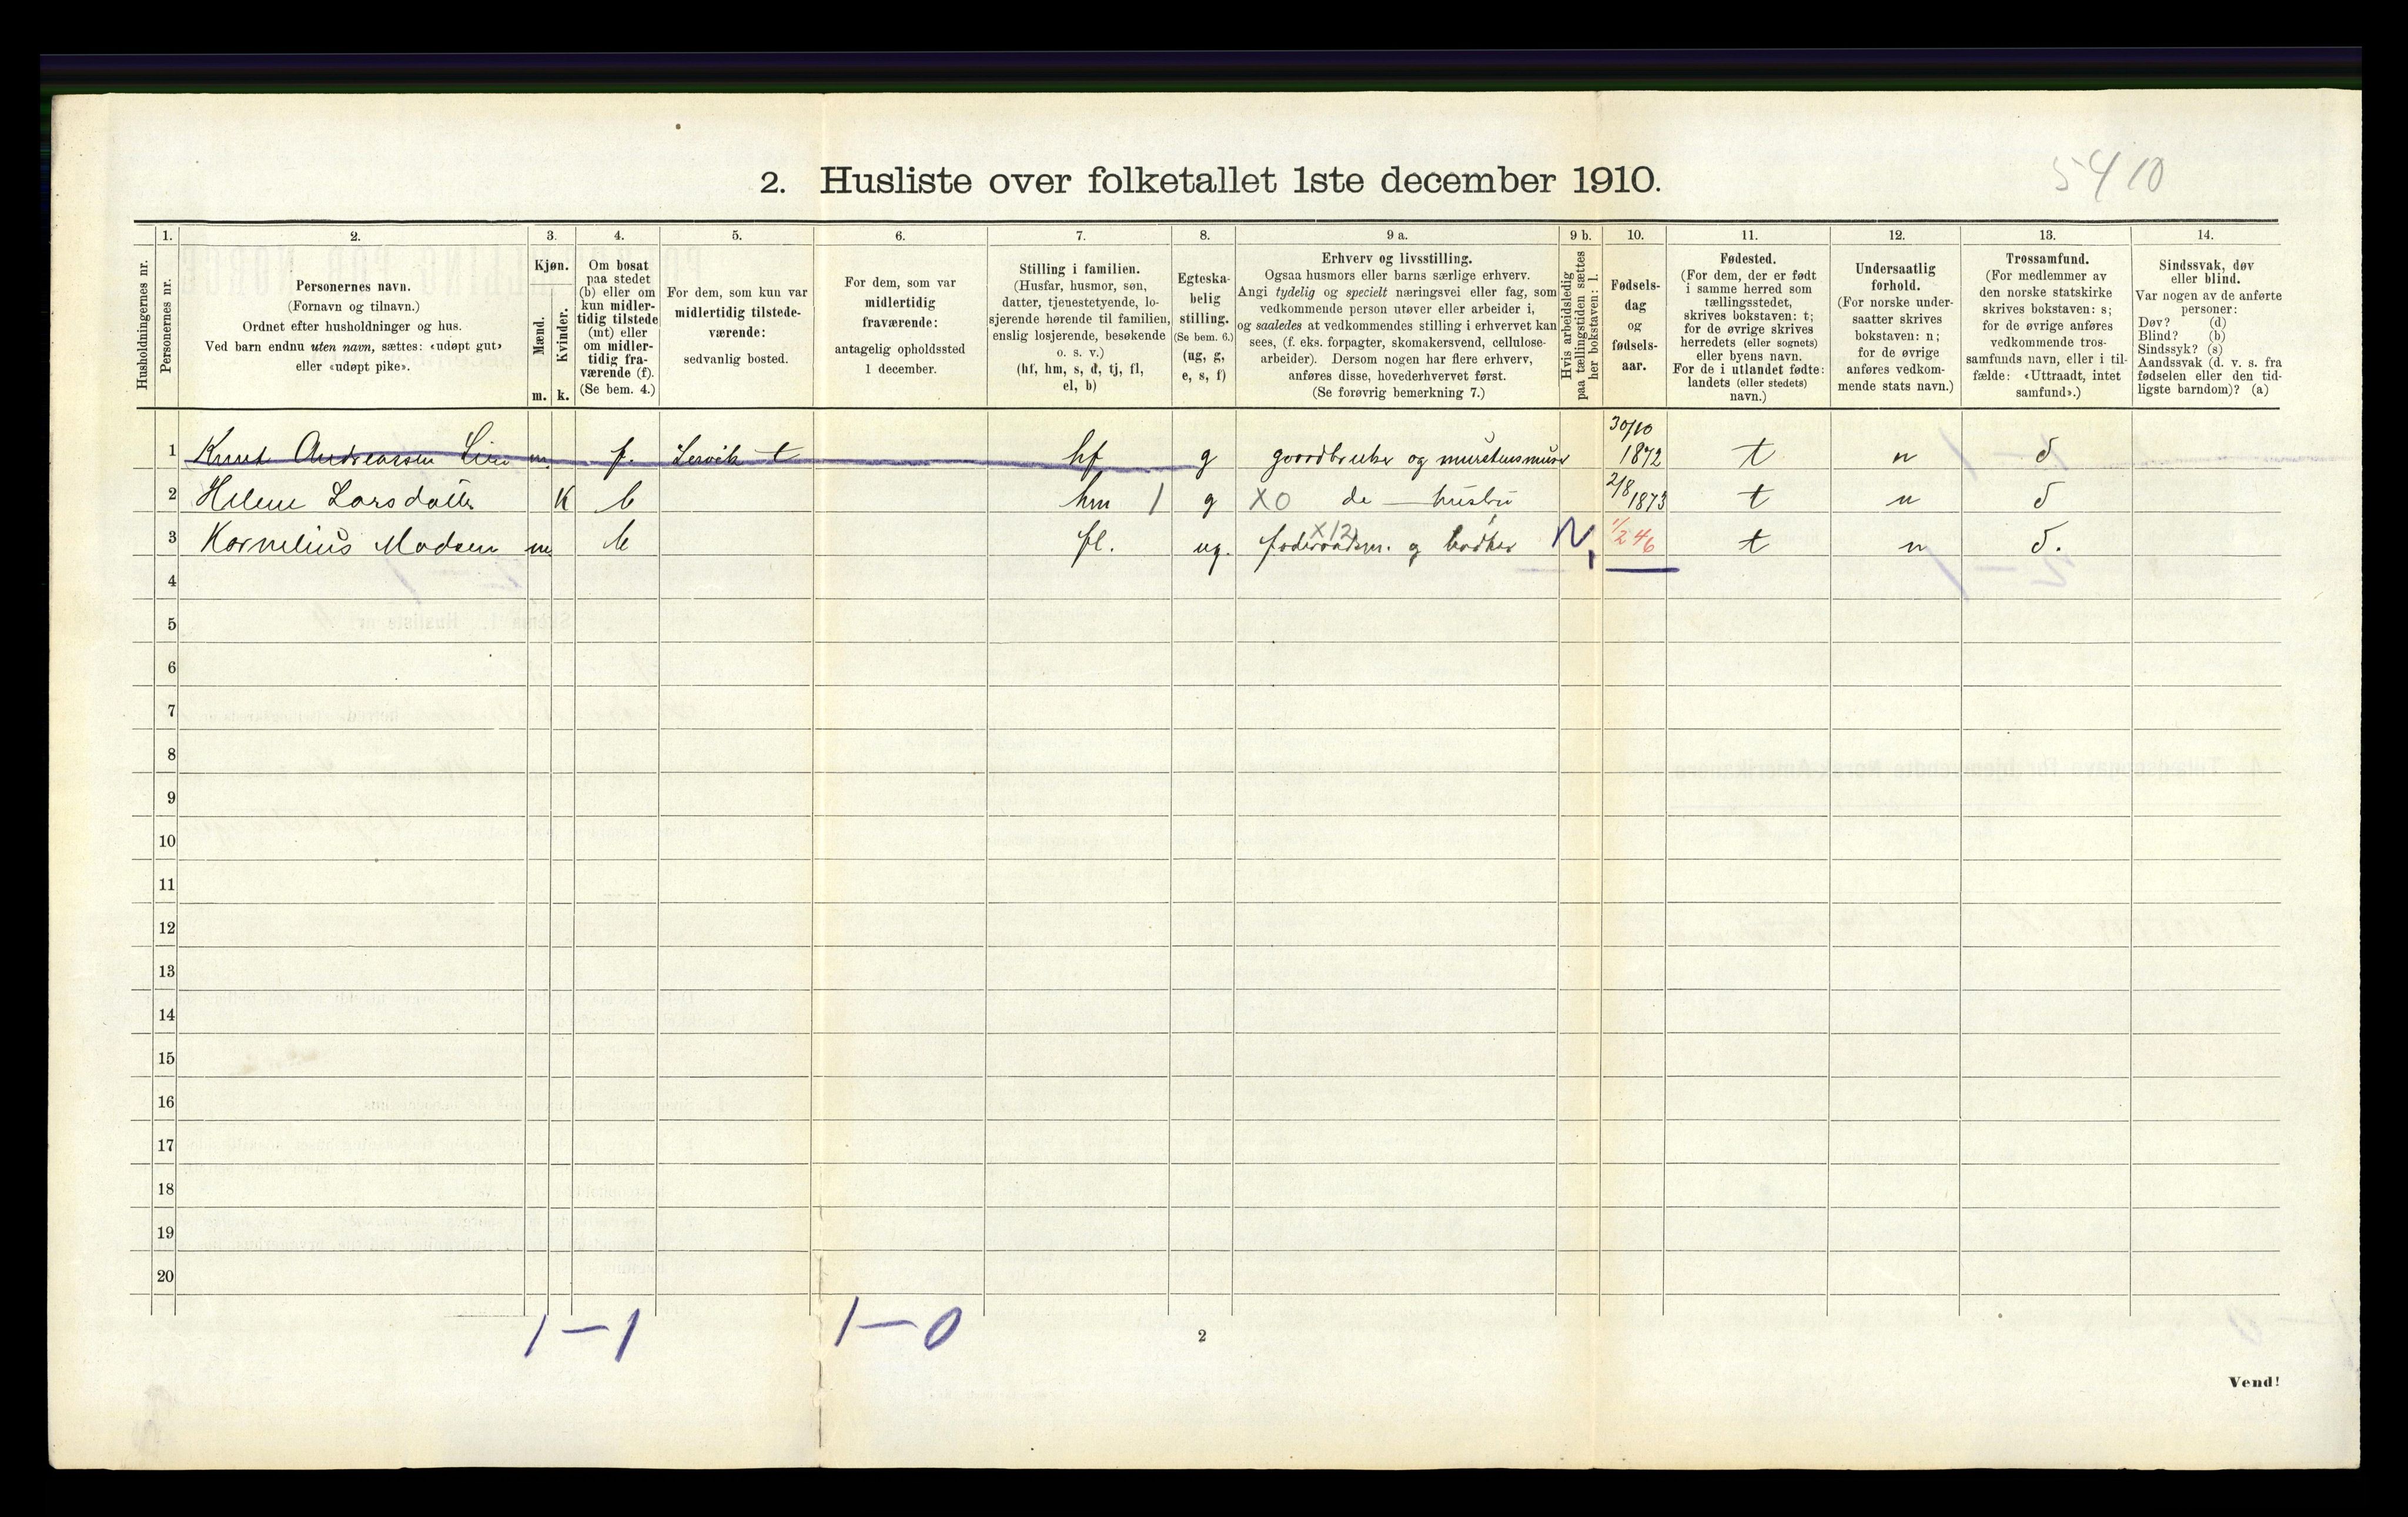 5410
2. Husliste over folketallet 1ste december 1910.
Husholdningernes nr.
1.
Personernes nr.
2.
Personernes navn.
(Fornavn og tilnavn.)
Ordnet efter husholdninger og hus.
Ved barn endnu uten navn, sættes: «udøpt gut»
eller «udøpt pike».
3.
Kjøn.
Mænd.
Kvinder.
m. k.
4.
Om bosat
paa stedet
(b) eller om
kun midler-
tidig tilstede
(mt) eller
om midler-
tidig fra-
værende (f).
(Se bem. 4.)
5.
For dem, som kun var
midlertidig tilstede-
værende:
sedvanlig bosted.
6.
For dem, som var
midlertidig
fraværende:
antagelig opholdssted
1 december.
7.
Stilling i familien.
(Husfar, husmor, søn,
datter, tjenestetyende, lo-
sjerende hørende til familien,
enslig losjerende, besøkende
o. s. v.)
(hf, hm, s, d, tj, fl,
el, b)
8.
Egteska-
belig
stilling.
(Se bem. 6.)
(ug, g,
e, s, f)
9 a.
Erhverv og livsstilling.
Ogsaa husmors eller barns særlige erhverv.
Angi tydelig og specielt næringsvei eller fag, som
vedkommende person utøver eller arbeider i,
og saaledes at vedkommendes stilling i erhvervet kan
sees, (f. eks. forpagter, skomakersvend, cellulose-
arbeider). Dersom nogen har flere erhverv,
anføres disse, hovederhvervet først.
(Se forøvrig bemerkning 7.)
9 b.
Hvis arbeidsledig
paa tællingstiden sættes
her bokstaven: l.
10.
Fødsels-
dag
og
fødsels-
aar.
11.
Fødested.
(For dem, der er født
i samme herred som
tællingsstedet,
skrives bokstaven: t;
for de øvrige skrives
herredets (eller sognets)
eller byens navn.
For de i utlandet fødte:
landets (eller stedets)
navn.)
12.
Undersaatlig
forhold.
(For norske under-
saatter skrives
bokstaven: n;
for de øvrige
anføres vedkom-
mende stats navn.)
13.
Trossamfund.
(For medlemmer av
den norske statskirke
skrives bokstaven: s;
for de øvrige anføres
vedkommende tros-
samfunds navn, eller i til-
fælde: «Uttraadt, intet
samfund».)
14.
Sindssvak, døv
eller blind.
Var nogen av de anførte
personer:
Døv? (d)
Blind? (b)
Sindssyk? (s)
Aandssvak (d. v. s. fra
fødselen eller den tid-
ligste barndom)? (a)
1 Knut Andreassen m f. Lervik t hf g gaardbruker og 30/10 1872 t n s
2 Helene Larsdatter K b hm 1 g XO de hustru 2/8 1873 t n s
3 Kornelius Madsen m b fl. ug. X12 foderaadsm. og bødker N, 1/2 46 t n s.
4
5
6
7
8
9
10
11
12
13
14
15
16
17
18
19
20
1-1 1-0
2
Vend!